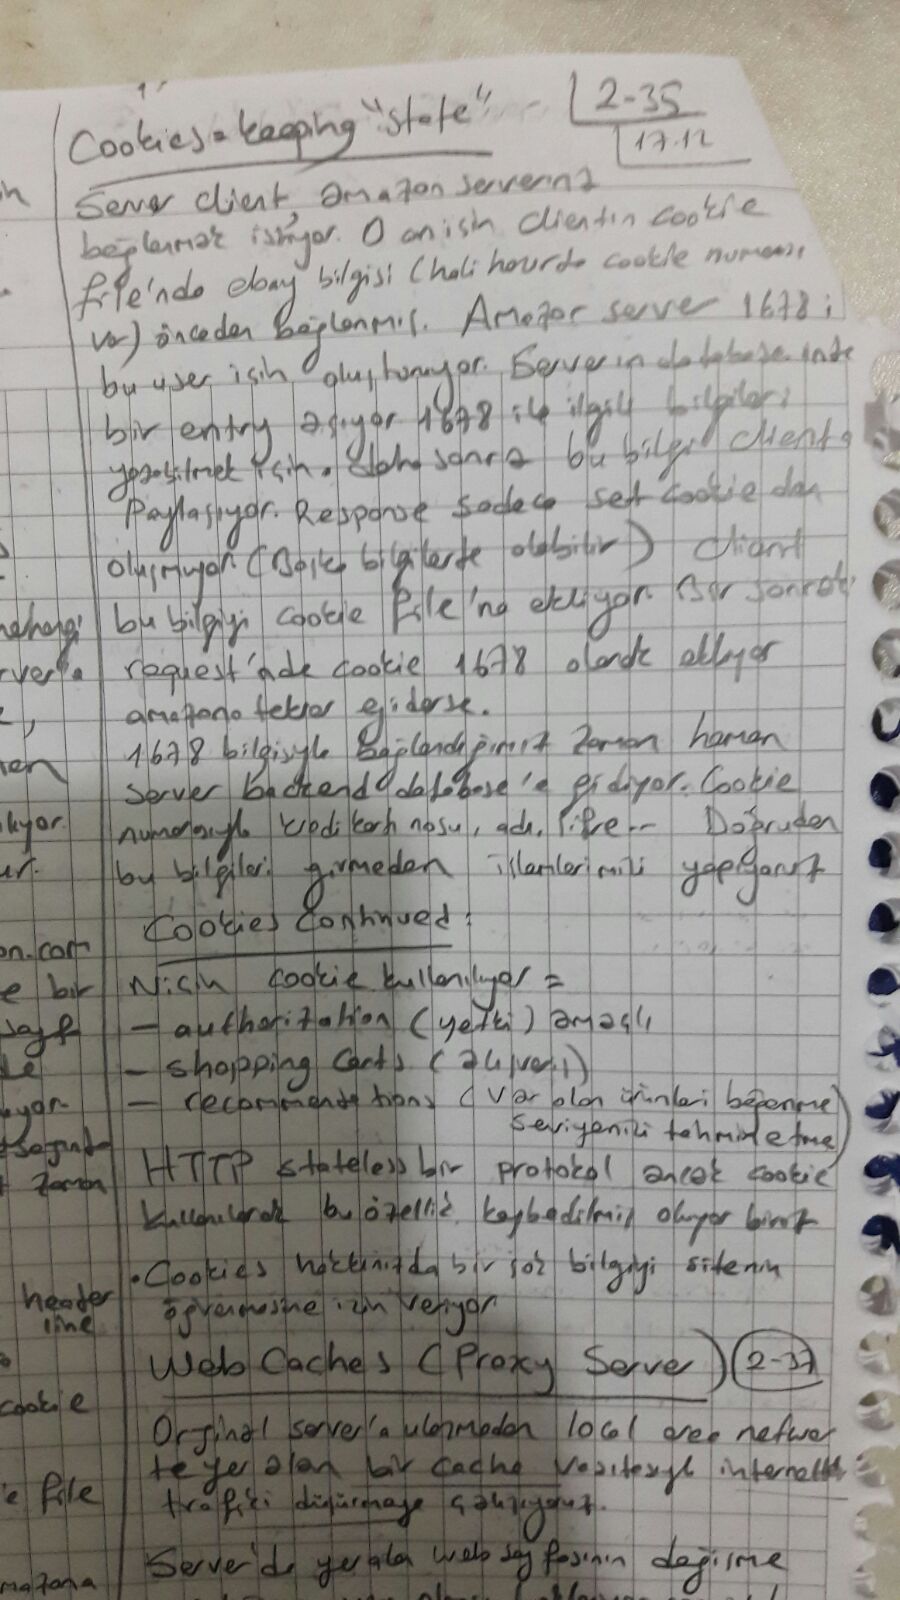 Cookies = keeping "state"
2-35
17.12
Server client amazon serverına
bağlanmak istiyor. O an için clientın cookie
file'nda ebay bilgisi (hali hazırda cookie numarası
var) önceden bağlanmış. Amazon server 1678 i
bu user için oluşturuyor. Serverın database'inde
bir entry açıyor 1678 ile ilgili bilgileri
yazabilmek için. Daha sonra bu bilgiyi clientla
Paylaşıyor. Response sadece set cookie dan
oluşmuyor (Başka bilgilerde olabilir) client
bu bilgiyi cookie file'na ekliyor. Bir sonraki
request'inde cookie 1678 olarak ekliyor
amazona tekrar giderse.
1678 bilgisiyle bağlandığımız zaman hemen
server backend database'e gidiyor. Cookie
numarasıyla kredi kartı nosu, adı, şifre -- Doğrudan
bu bilgileri girmeden işlemlerimizi yapıyoruz
Cookies Continued:
Niçin cookie kullanılıyor =
- authorization (yetki) amaçlı
- shopping carts (alışveriş)
- recommendations (var olan ürünleri beğenme
seviyenizi tahmin etme)
HTTP stateless bir protokol ancak cookie
kullanılarak bu özellik kaybedilmiş oluyor biraz
• Cookies hakkınızda bir çok bilgiyi sitenin
öğrenmesine izin veriyor
Web Caches (Proxy Server) 2-37
Orginal server'a ulaşmadan local area networ
te yer alan bir cache vasıtasıyla internetteki
trafiği düşürmeye çalışıyoruz.
Server'da yer alan web sayfasının değişme
rver'a
kıyor
on.com
e bir
zaman
header
line
cookie
e file
mazona